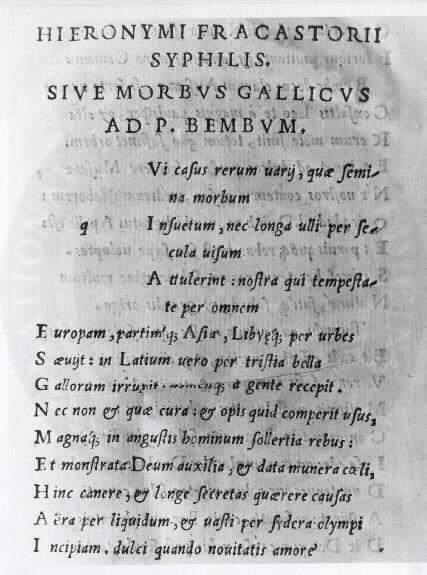 HIERONYMI FRACASTORII
SYPHILIS.
SIVE MORBVS GALLICVS
AD P. BEMBVM.
Vi casus rerum uarij, quæ semi-
na morbum
q Insuetum, nec longa ulli per se-
cula uisum
Attulerint: nostra qui tempesta-
te per omnem
Europam, partimq; Asiæ, Libyęq; per urbes
Sæuijt: in Latium uero per tristia bella
Gallorum irrupit. nomenq; a gente recepit.
Nec non & quæ cura: & opis quid comperit usus,
Magnaq; in angustis hominum sollertia rebus:
Et monstrata Deum auxilia, & data munera cœli,
Hinc canere, & longe secretas quærere causas
Aëra per liquidum, & uasti per sydera olympi
Incipiam. dulci quando nouitatis amore